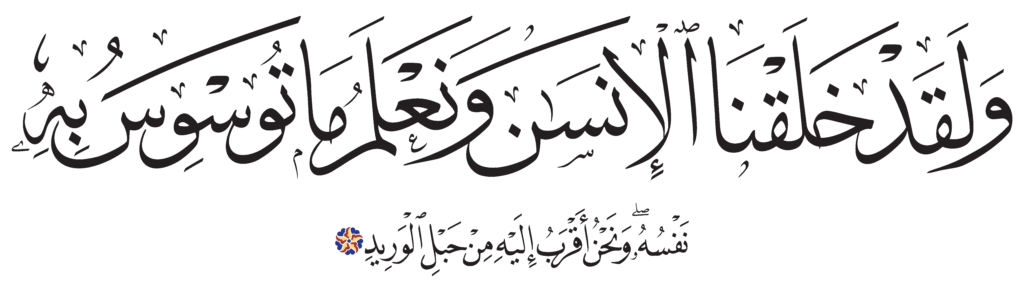 وَلَقَدْ خَلَقْنَا ٱلْإِنسَـٰنَ وَنَعْلَمُ مَا تُوَسْوِسُ بِهِۦ
نَفْسُهُۥ ۖ وَنَحْنُ أَقْرَبُ إِلَيْهِ مِنْ حَبْلِ ٱلْوَرِيدِ